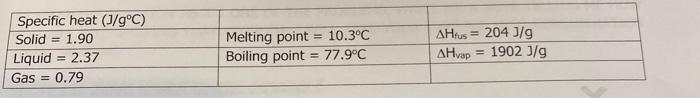 Specific heat (J/g°C)
Solid = 1.90 Melting point = 10.3°C ΔHfus = 204 J/g
Liquid = 2.37 Boiling point = 77.9°C ΔHvap = 1902 J/g
Gas = 0.79